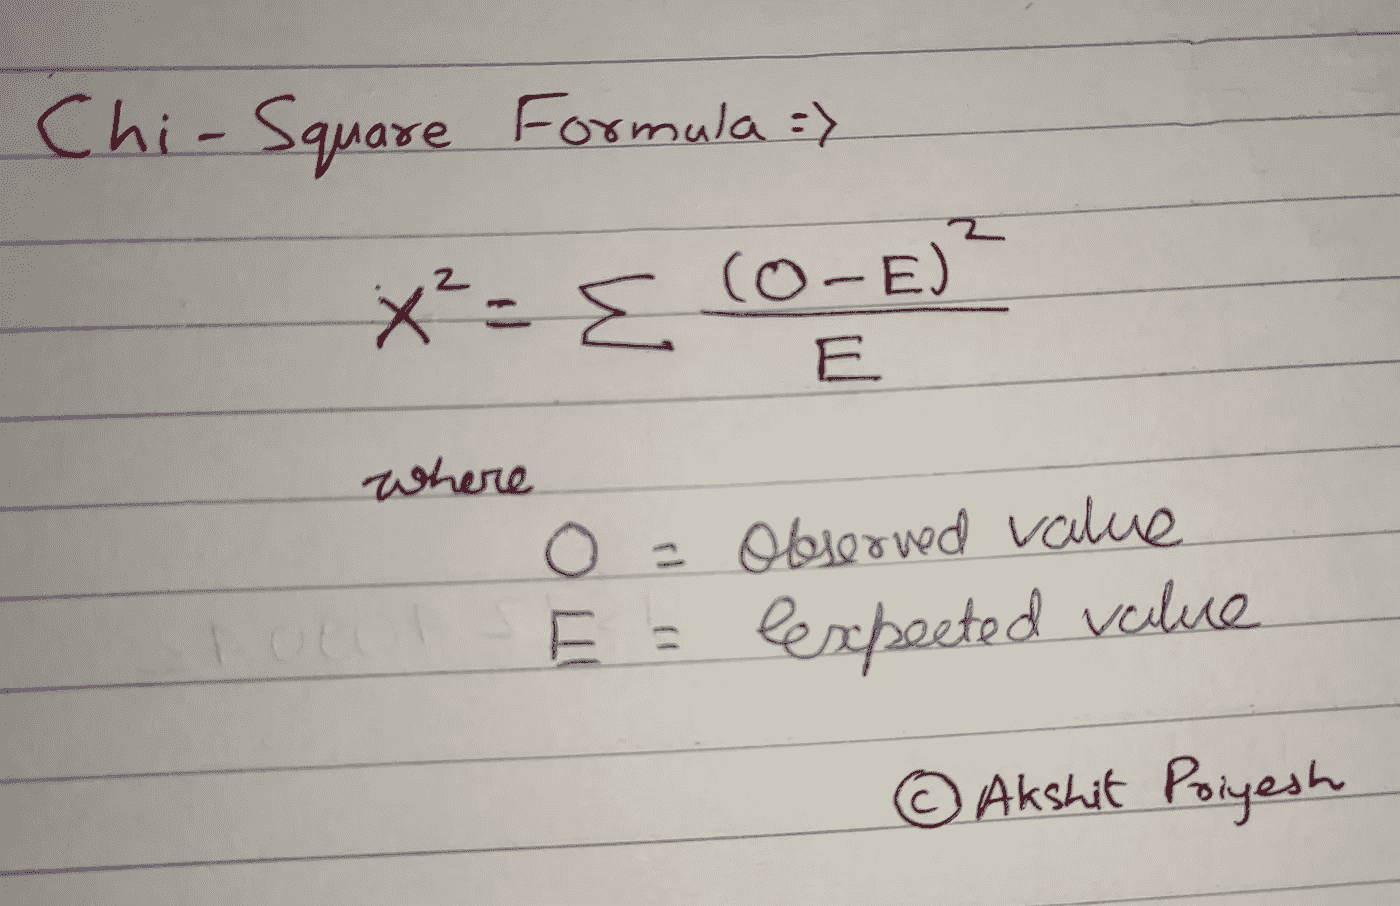 Chi-Square Formula =>
X² = Σ (O-E)² / E
where
O = Observed value
E = Expected value
© Akshit Priyesh